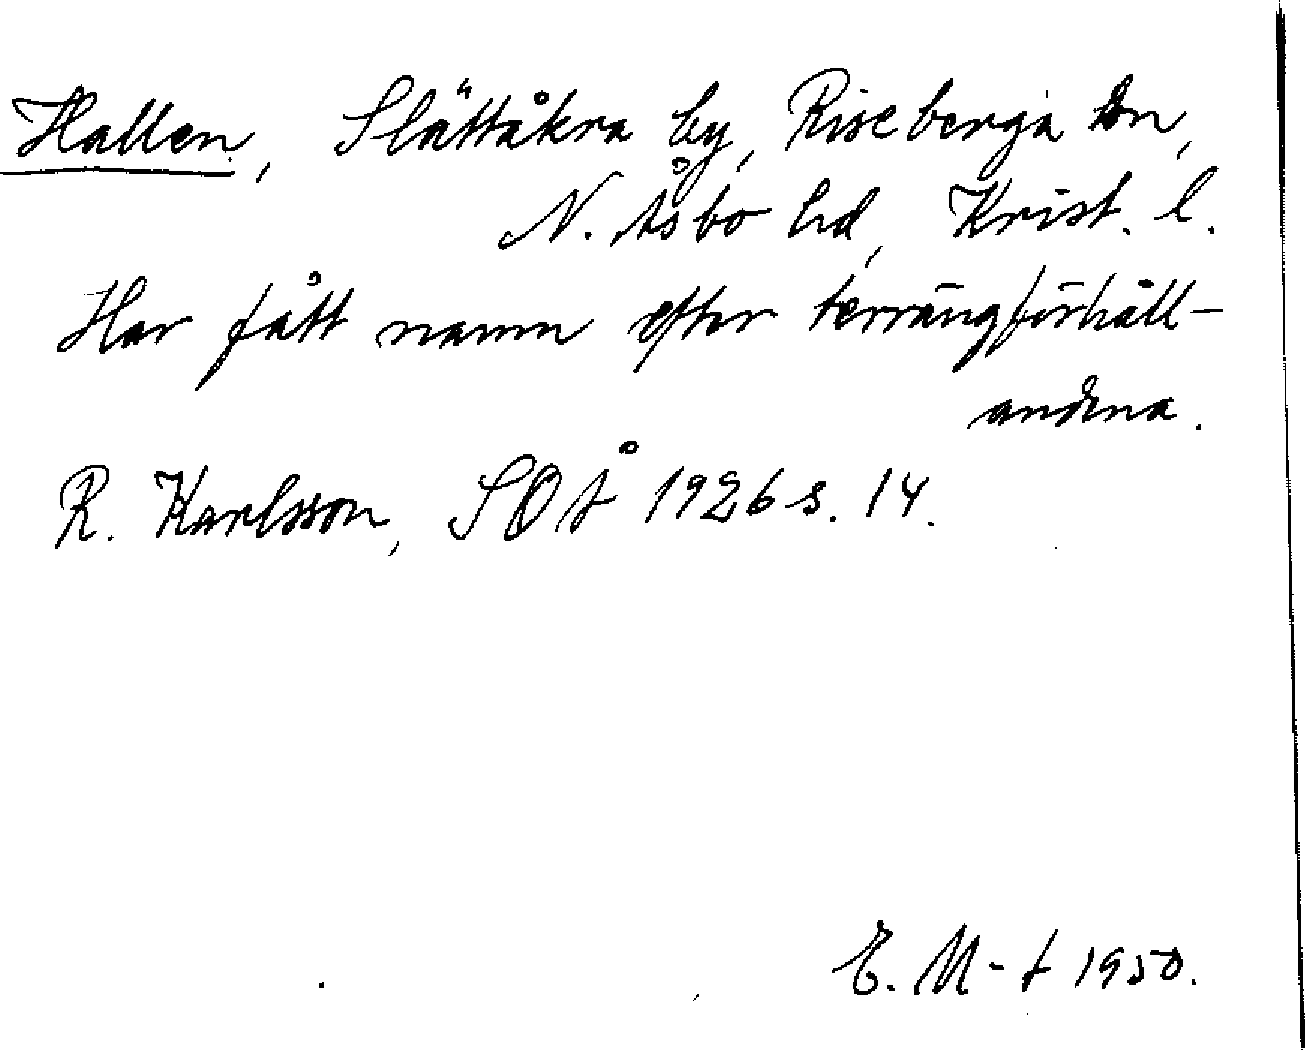 Hallen, Slättåkra by, Riseberga sn,
N. Åsbo hd, Krist. l.
Har fått namn efter terrängförhåll-
andena.
R. Karlsson, SOÅ 1926 s. 14.
E. M-t 1950.